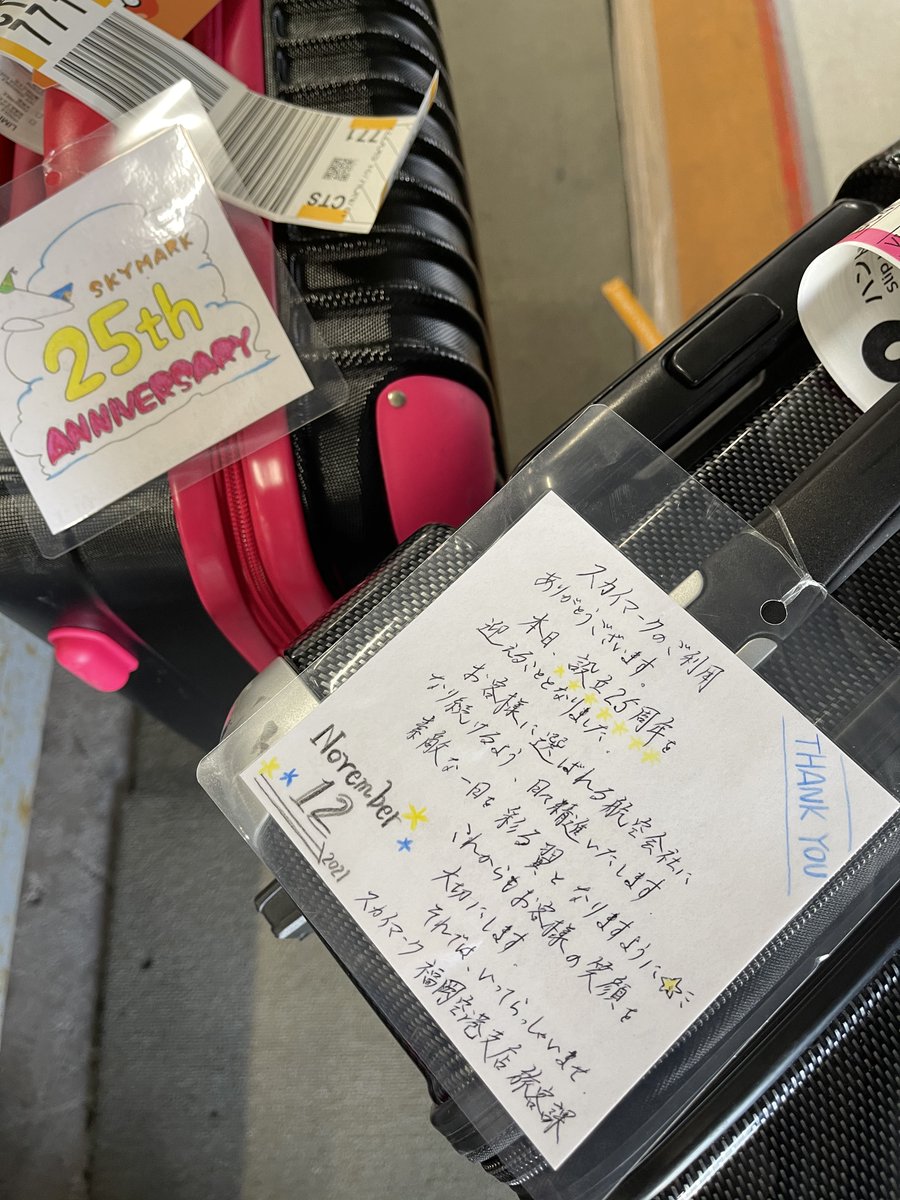 771
771
CTS
SKYMARK
25th
ANNIVERSARY
ハン
THANK YOU
スカイマークのご利用
ありがとうございます。
本日、設立25周年を
迎えることとなりました。
お客様に選ばれる航空会社に
なり続けるよう、日々精進いたします。
素敵な一日を彩る翼となりますように☆ミ
これからもお客様の笑顔を
大切にします。
それでは、いってらっしゃいませ。
スカイマーク 福岡空港支店 旅客課
November
12
2021